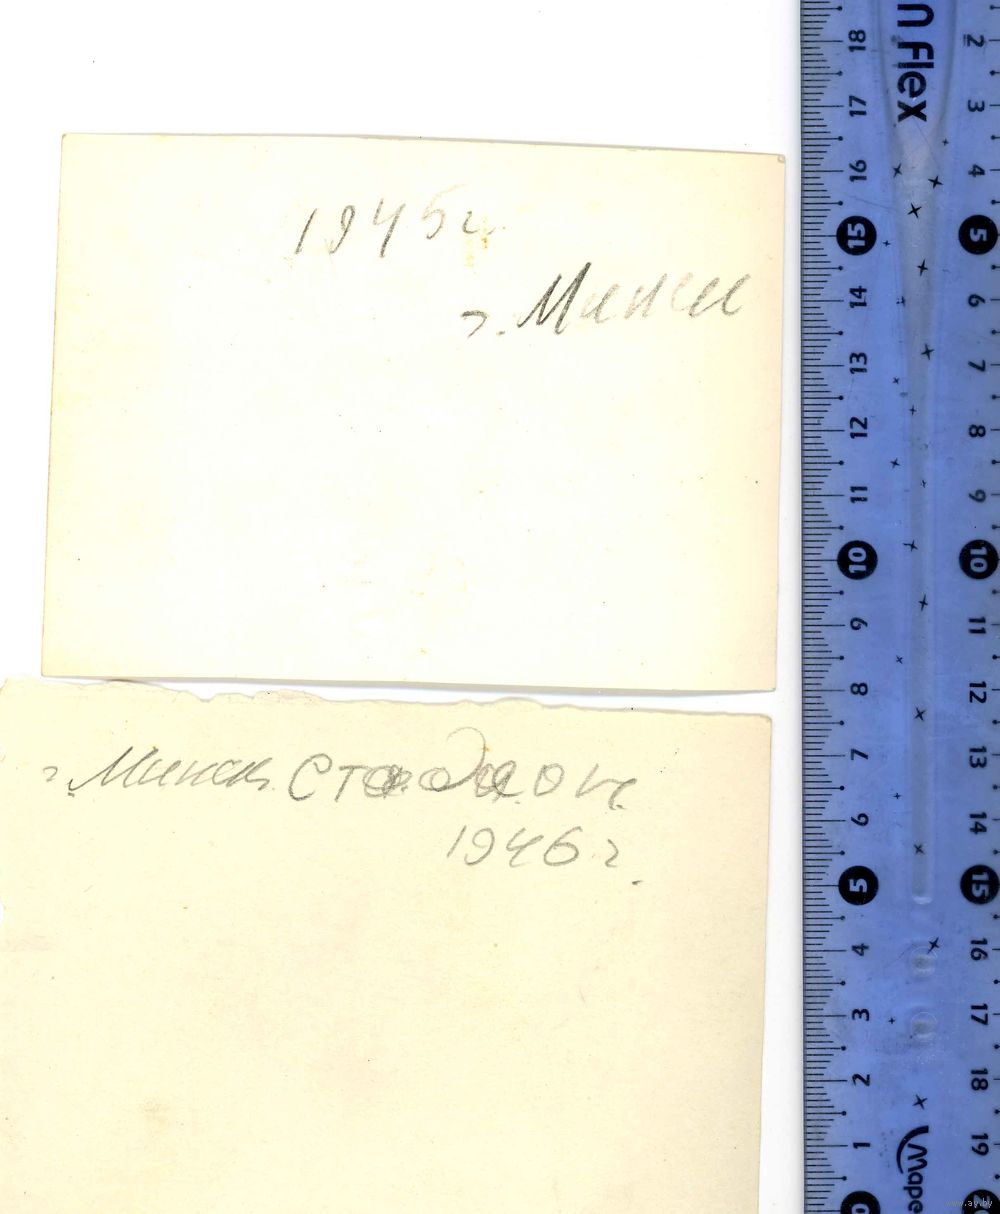 1945 г.
г. Минск
г. Минск. Стадион.
1946 г.
n Flex
18 17 16 15 14 13 12 11 10 9 8 7 6 5 4 3 2 1 0
2 3 4 5 6 7 8 9 10 11 12 13 14 15 16 17 18 19
Mape
www.ay.by